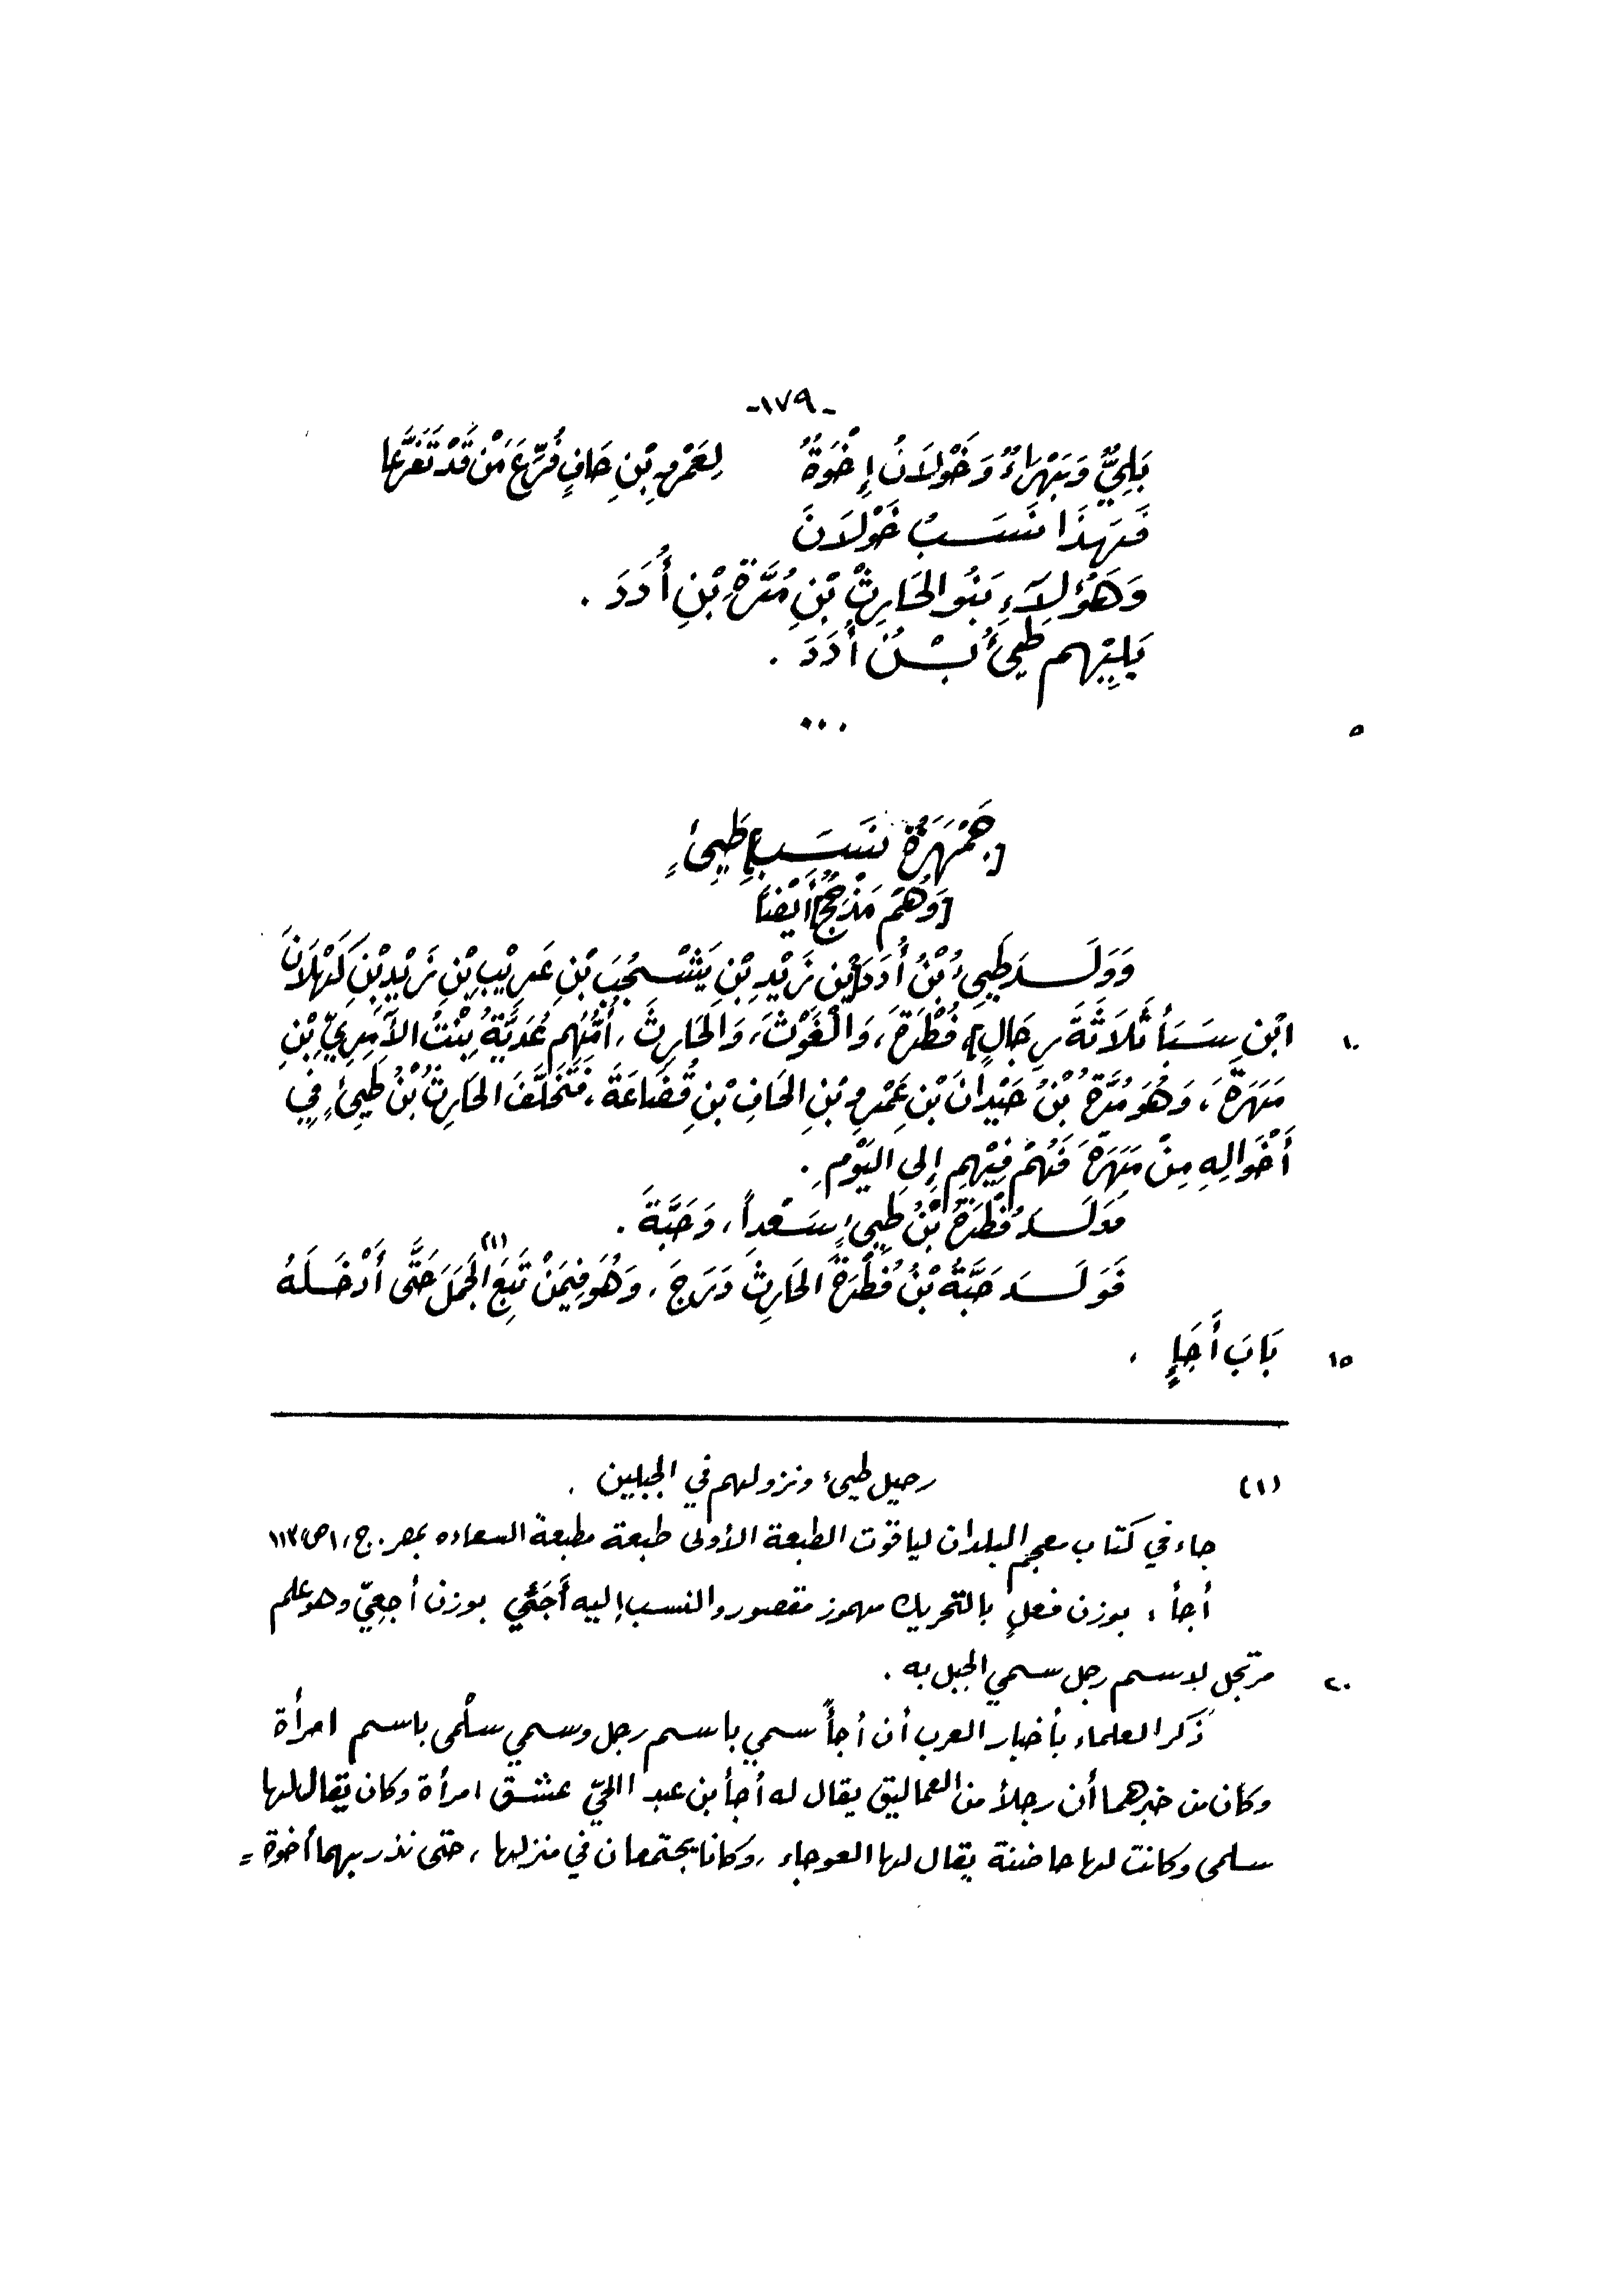 -١٧٩-
بَلِيٌّ وَبَهْرَاءٌ وَخَوْلَانُ إِخْوَةٌ لِعَمْرِو بْنِ حَافٍ فُرِّعَ مَنْ قَدْ تَفَرَّعَا
فَهَذَا نَسَبُ خَوْلَانَ
وَهَؤُلَاءِ بَنُو الحَارِثِ بْنِ مُرَّةَ بْنِ أُدَدَ .
يَلِيْهِم طَيِّئُ بْنُ أُدَدَ .
...
٥
[جَمْهَرَةُ نَسَبِ] طَيِّئٍ
[وَهُمْ مَذْحِجٌ] أَيْضَاً
وَوَلَدَ طَيِّئُ بْنُ أُدَدَ [بْنِ زَيْدِ بْنِ يَشْجُبَ بْنِ عَرِيْبِ بْنِ زَيْدِ بْنِ كَهْلَانَ
ابْنِ سَبَأ ثَلَاثَةَ رِجَالٍ] فُطْرَةَ، وَالْغَوْثَ، وَالحَارِثَ، أُمُّهُم عُدَيَّةُ بِنْتُ الآمِرِيِّ بْنِ ١٠
مَهَرَةَ، وَهُوَ مُرَّةُ بْنُ حَيْدَانَ بْنِ عَمْرِو بْنِ الحَافِ بْنِ قُضَاعَةَ، فَتَخَلَّفَ الحَارِثُ بْنُ طَيِّئٍ فِي
أَخْوَالِهِ مِنْ مَهَرَةَ فَهُمْ فِيْهِم إِلَى اليَوْمِ .
فَوَلَدَ فُطْرَةُ بْنُ طَيِّئٍ سَعْداً، وَحَيَّةَ .
فَوَلَدَ حَيَّةُ بْنُ فُطْرَةَ الحَارِثَ دَرَجَ، وَهُوَ فِيمَنْ تَبِعَ الجَمَلَ(١) حَتَّى أَدْخَلَهُ
بَابَ أَجَإٍ . ١٥
(١) رحيل طيئ ونزولهم في الجبلين .
جاء في كتاب معجم البلدان لياقوت الطبعة الأولى طبعة مطبعة السعاده بمصر. ج، ١ ص، ١١٣
أجأ : بوزن فعلٍ بالتحريك مهموز مقصور والنسب إليه أَجَئِي بوزن أجعِيّ وهو علم
مرتجل لاسم رجل سمي الجبل به . ٢٠
ذَكر العلماء بأخبار العرب أن أجأً سمي باسم رجل وسمي سلْمى باسم امرأة
وكان من خبرهما أن رجلاً من العماليق يقال له أجأ بن عبد الحيّ عشق امرأة وكان يقال لها
سلمى وكانت لها حاضنة يقال لها العوجاء، وكانا يجتمعان في منزلها، حتى نذر بهما أخوة =